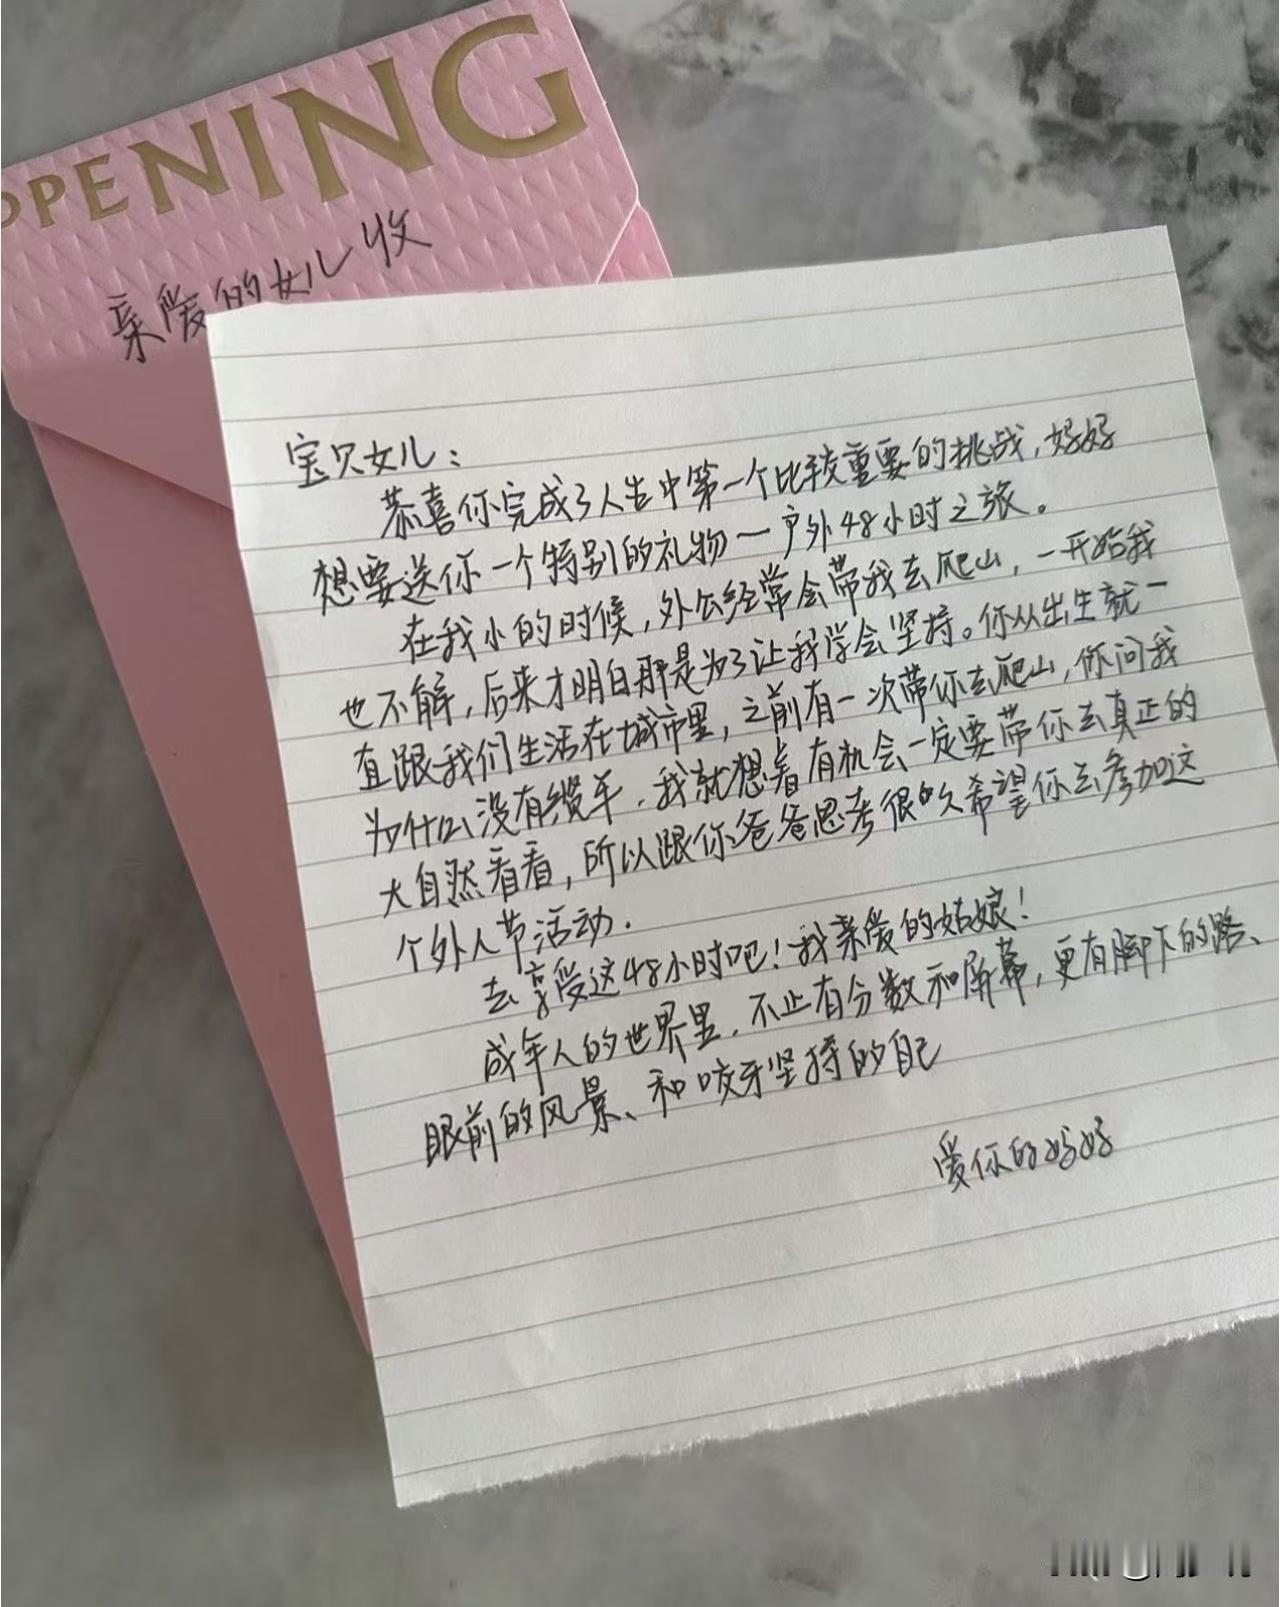 OPENING
亲爱的女儿收
宝贝女儿：
恭喜你完成了人生中第一个比较重要的挑战，好好
想要送你一个特别的礼物一户外48小时之旅。
在我小的时候，外公经常会带我去爬山，一开始我
也不解，后来才明白那是为了让我学会坚持。你从出生就一
直跟我们生活在城市里，之前有一次带你去爬山，你问我
为什么没有缆车，我就想着有机会一定要带你去真正的
大自然看看，所以跟你爸爸思考很久希望你去参加这
个外人节活动.
去享受这48小时吧！我亲爱的姑娘！
成年人的世界里，不止有分数和屏幕，更有脚下的路、
眼前的风景、和咬牙坚持的自己
爱你的好好